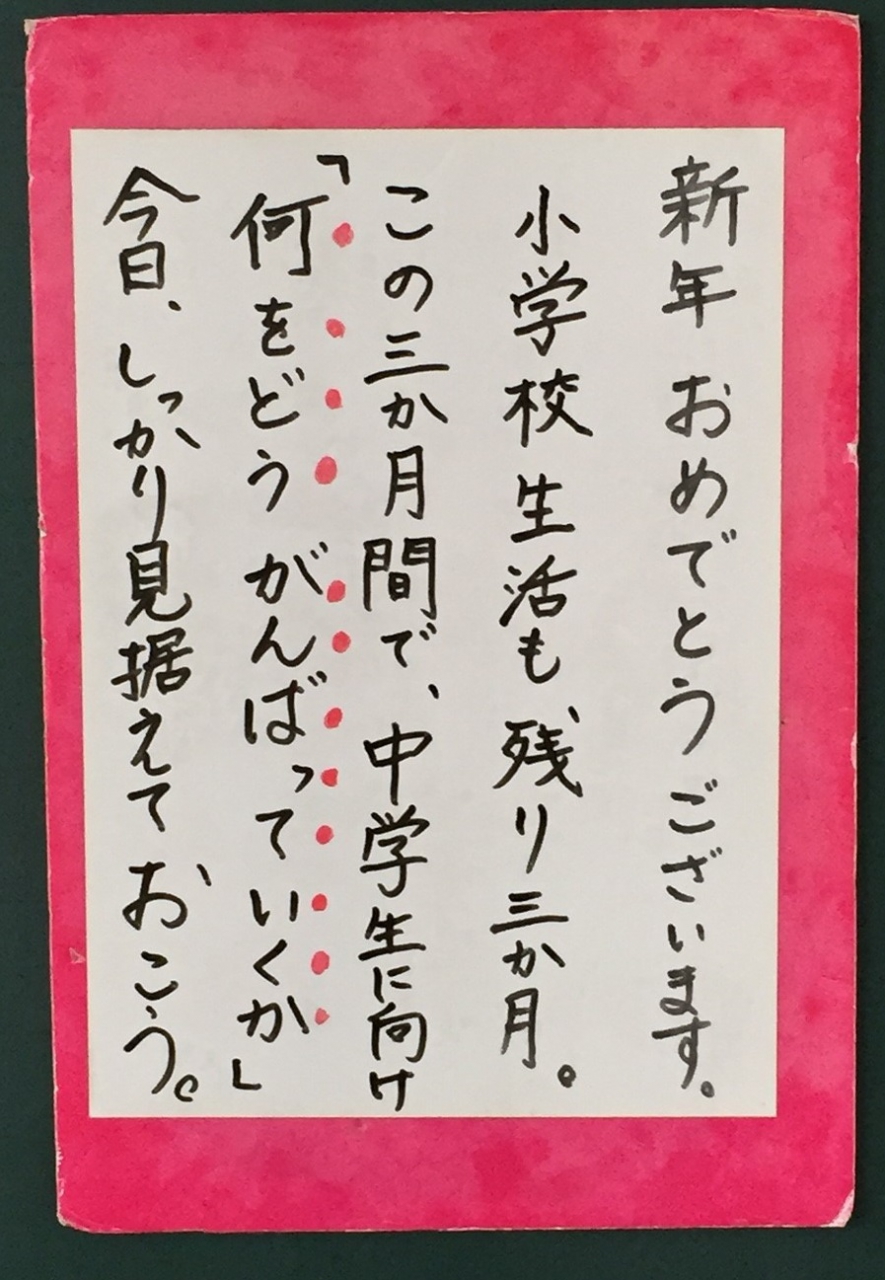 新年 おめでとう ございます。
小学校 生活も 残り三か月。
この三か月間で、中学生に向け
「何をどう がんばっていくか」
今日、しっかり見据えて おこう。